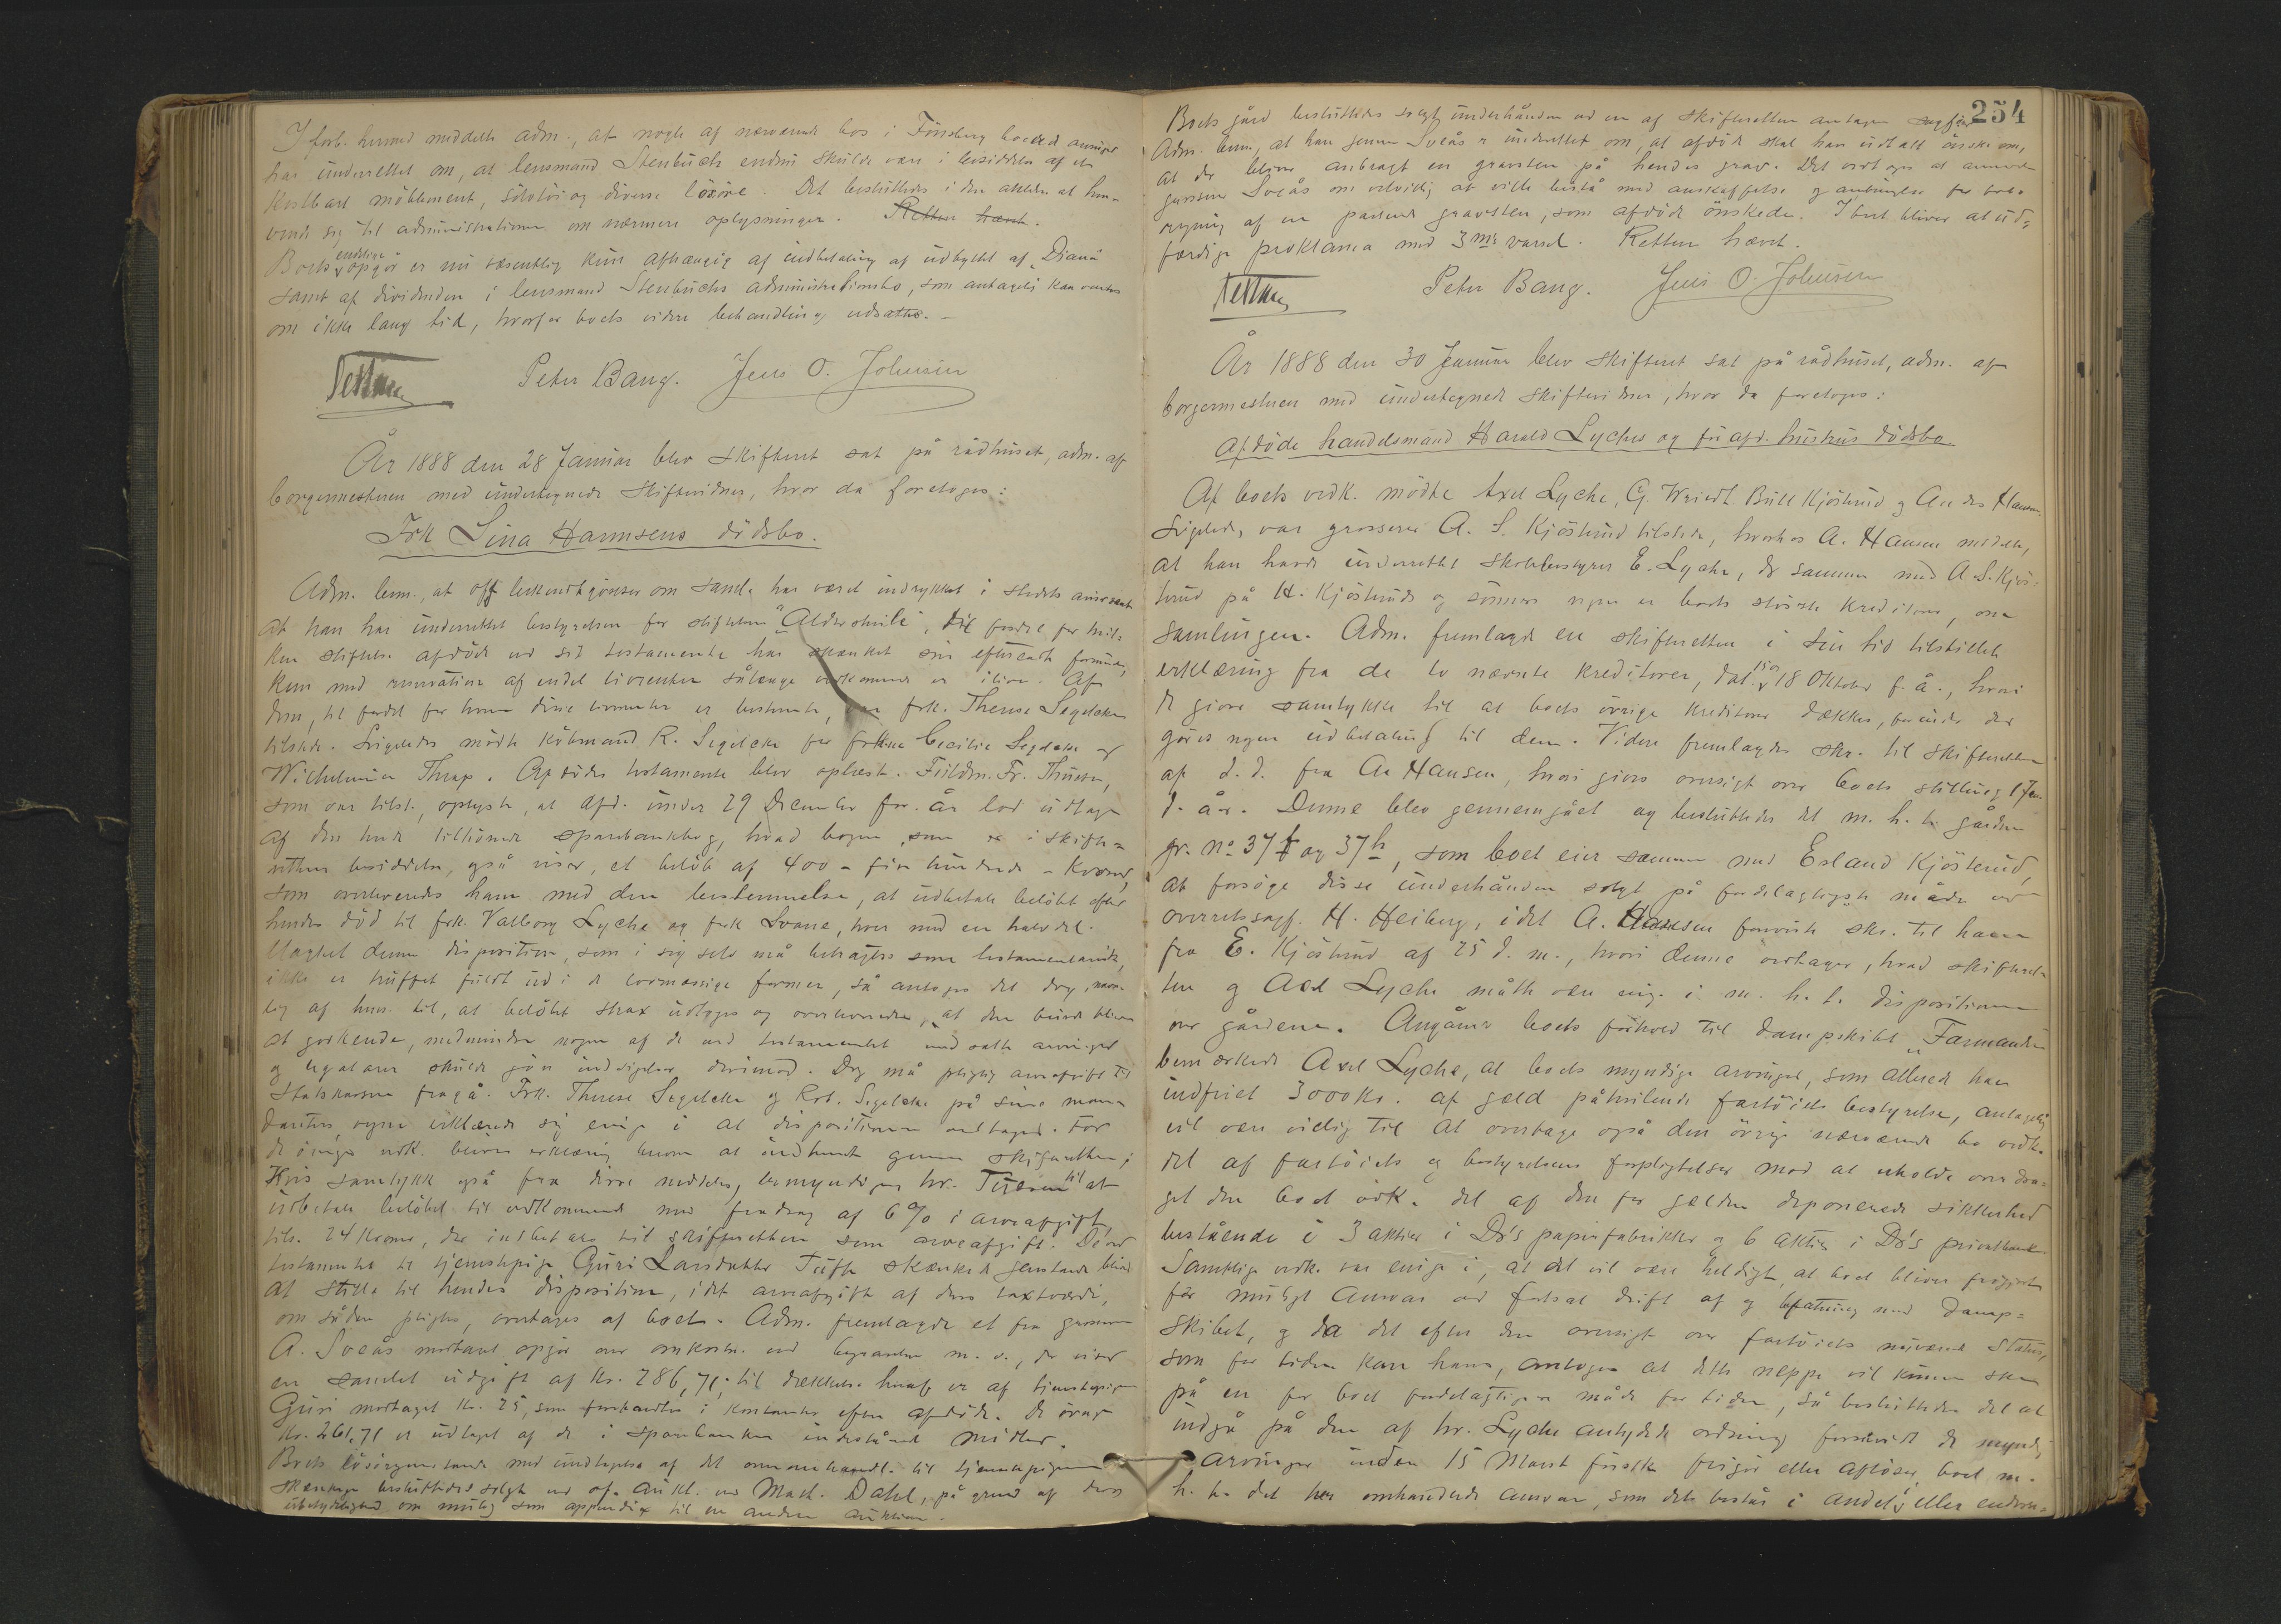 I forb. hermed meddelte adm., at nogle af nærværende bos i Tönsberg boende arvinger
har underrettet om, at lensmand Stenbuch endnu skulde være i besiddelse af et
kostbart möblement, sölvtöi og diverse lösöre. Det besluttedes i den anledn. at hen-
vende sig til administrationen om nærmere oplysninger. Retten hævet.
Boets endelige opgjör er nu væsentlig kun afhængig af indbetaling af udbyttet af "Diana"
samt af dividenden i lensmand Stenbuchs administrationsbo, som antagelig kan ventes
om ikke lang tid, hvorfor boets videre behandling udsattes.
Peter Bang. Jens O. Johnsen
År 1888 den 28 Januar blev skifteret sat på rådhuset, adm. af
borgermesteren med undertegnede skiftevidner, hvor da foretoges:
Frk Lina Harmsens dödsbo.
Adm. bem., at off. bekendtgjörelse om samle. har været indrykket i stedets aviser samt
at han har underrettet bestyrelsen for stiftelsen "Aldershvile", til fordel for hvil-
ken stiftelse afdöde ved sit testamente har skænket sin efterladte formue,
kun med reservation af endel livrenter sålænge vedkommende er ilive. Af
dem, til fordel for hvem disse livrenter er bestemte, var frk. Therese Segelcke
tilstede. Ligeledes mödte köbmand R. Segelcke for frkne Cecilie Segelcke og
Wilhelmine Thrap. Afdödes testamente blev oplæst. Fuldm. Fr. Thuesen,
som var tilst., oplyste, at afd. under 29 December for. år lod udtage
af den hende tilhörende sparebankbog, hvad bogen, som er i skifte-
rettens besiddelse, også viser, et belöb af 400 - fire hundrede - Kroner,
som overleveredes ham med den bestemmelse, at udbetale belöbet efter
hendes död til frk. Valborg Lyche og frk Svane, hver med en halvdel.
Uagtet denne disposition, som i sig selv må betragtes som testamentarisk,
ikke er truffet fuldt ud i de lovmæssige former, så antoges det dog, navn-
lig af hen. til, at belöbet strax udtoges og overleveredes, at den burde blive
at godkende, medmindre nogen af de ved testamentet indsatte arvinger
og legatarer skulde gjöre indsigelse derimod. Dog må pligtig arveafgift til
Statskassen fragå. Frk. Therese Segelcke og Rob. Segelcke på sine man-
danters vegne erklærede sig enige i at dispositionen vedtages. For
de övrige vedk. bliver erklæring herom at indhente gennem skifteretten;
Hvis samtykke også fra disse meddeles, bemyndiges hr. Tuesen til at
udbetale belöbet til vedkommende med fradrag af 6 % i arveafgift,
tils. 24 Kroner, der indbetales til skifteretten som arveafgift. De ved
testamentet til tjenestepige Guri Larsdatter Tufte skænkede genstande bliver
at stille til hendes disposition, idet arveafgift af deres taxtværdi,
om sådan pligtes, overtages af boet. Adm. fremlagde et fra grosserer
A. Sveås modtaget opgjör over omkostn. ved begravelsen m. v., der viser
en samlet udgift af Kr. 286,71; til dækkelse heraf er af tjenestepigen
Guri modtaget Kr. 25, som forhandles i kontanter efter afdöde. De övrige
Kr. 261,71 er udtaget af de i sparebanken indestående midler.
Boets lösöregenstande med undtagelse af det ommeldte til tjenestepigen
skænkede besluttedes solgt ved off. aukt. ved Mart. Dahl, på grund af dens
ubetydelighed om mulig som appendix til en anden auktion.
254
Boets gård besluttedes solgt underhånden ved en af skifteretten antagen sagförer
Adm. bem., at han gennem Sveås er underrettet om, at afdöde skal have udtalt önske om,
at der bliver anbragt en gravsten på hendes grav. Det vedtoges at anmode
grosserer Sveås om velvillig at ville bistå med anskaffelse og anbringelse for boets
regning af en passende gravsten, som afdöde önskede. I boet bliver at ud-
færdige proklama med 3 mds varsel. Retten hævet.
Peter Bang. Jens O. Johnsen
År 1888 den 30 Januar blev skifteret sat på rådhuset, adm. af
borgermesteren med undertegnede skiftevidner, hvor da foretoges:
Afdöde handelsmand Harald Lyches og för afd. hustrus dödsbo.
Af boets vedk. mödte Axel Lyche, G. Wriedt Bull Kjösterud og Anders Hansen.
Ligeledes var grosserer A. S. Kjösterud tilstede, hvorhos A. Hansen meddelte,
at han havde underrettet skolebestyrer E. Lyche, der sammen med A. S. Kjös-
terud på H. Kjösteruds og sönners vegne er boets störste kreditorer, om
samlingen. Adm. fremlagde en skifteretten i sin tid tilstillet
erklæring fra de to nævnte kreditorer, dat. 15 og 18 Oktober f. å., hvori
de giver samtykke til at boets övrige kreditorer dækkes, forinden der
göres nogen udbetaling til dem. Videre fremlagdes skr. til skifteretten
af d. d. fra A. Hansen, hvori gives oversigt over boets stilling 1 Jan
d. år. Denne blev gennemgået og besluttedes det m. h. t. gården
gr. No 37 f og 37 h, som boet eier sammen med Erland Kjösterud,
at forsöge disse underhånden solgt på fordelagtigste måde ved
overretssagf. H. Heiberg, idet A. Hansen foreviste skr. til ham
fra E. Kjösterud af 25 d. m., hvori denne vedtager, hvad skifteret-
ten og Axel Lyche måtte være enig. i m. h. t. dispositionen
over gårdene. Angående boets forhold til dampskibet "Farmanden"
bemærkede Axel Lyche, at boets myndige arvinger, som allerede har
indfriet 3000 Kr. af gæld påhvilende fartöiets bestyrelse, antagelig
vil være villig til at overtage også den övrige nærværende bo vedk.
del af fartöiets og bestyrelsens forpligtelser mod at erholde overdra-
get den boet vedk. del af den for gælden deponerede sikkerhed
bestående i 3 aktier i Ds papirfabrikker og 6 aktier i Ds privatbank.
Samtlige vedk. var enige i, at det vil være heldigt, at boet bliver frigjort
for muligt ansvar ved fortsat drift af og befatning med damp-
skibet, og da det efter den oversigt over fartöiets nuværende status,
som for tiden kan haves, antoges at dette neppe vil kunne ske
på en for boet fordelagtigere måde for tiden, så besluttedes det at
indgå på den af hr. Lyche antydede ordning forsåvidt de myndige
arvinger inden 15 Marst förstk. frigör eller aflöser boet m.
h. t. det her omhandlede ansvar, som dels består i andels eller endos-